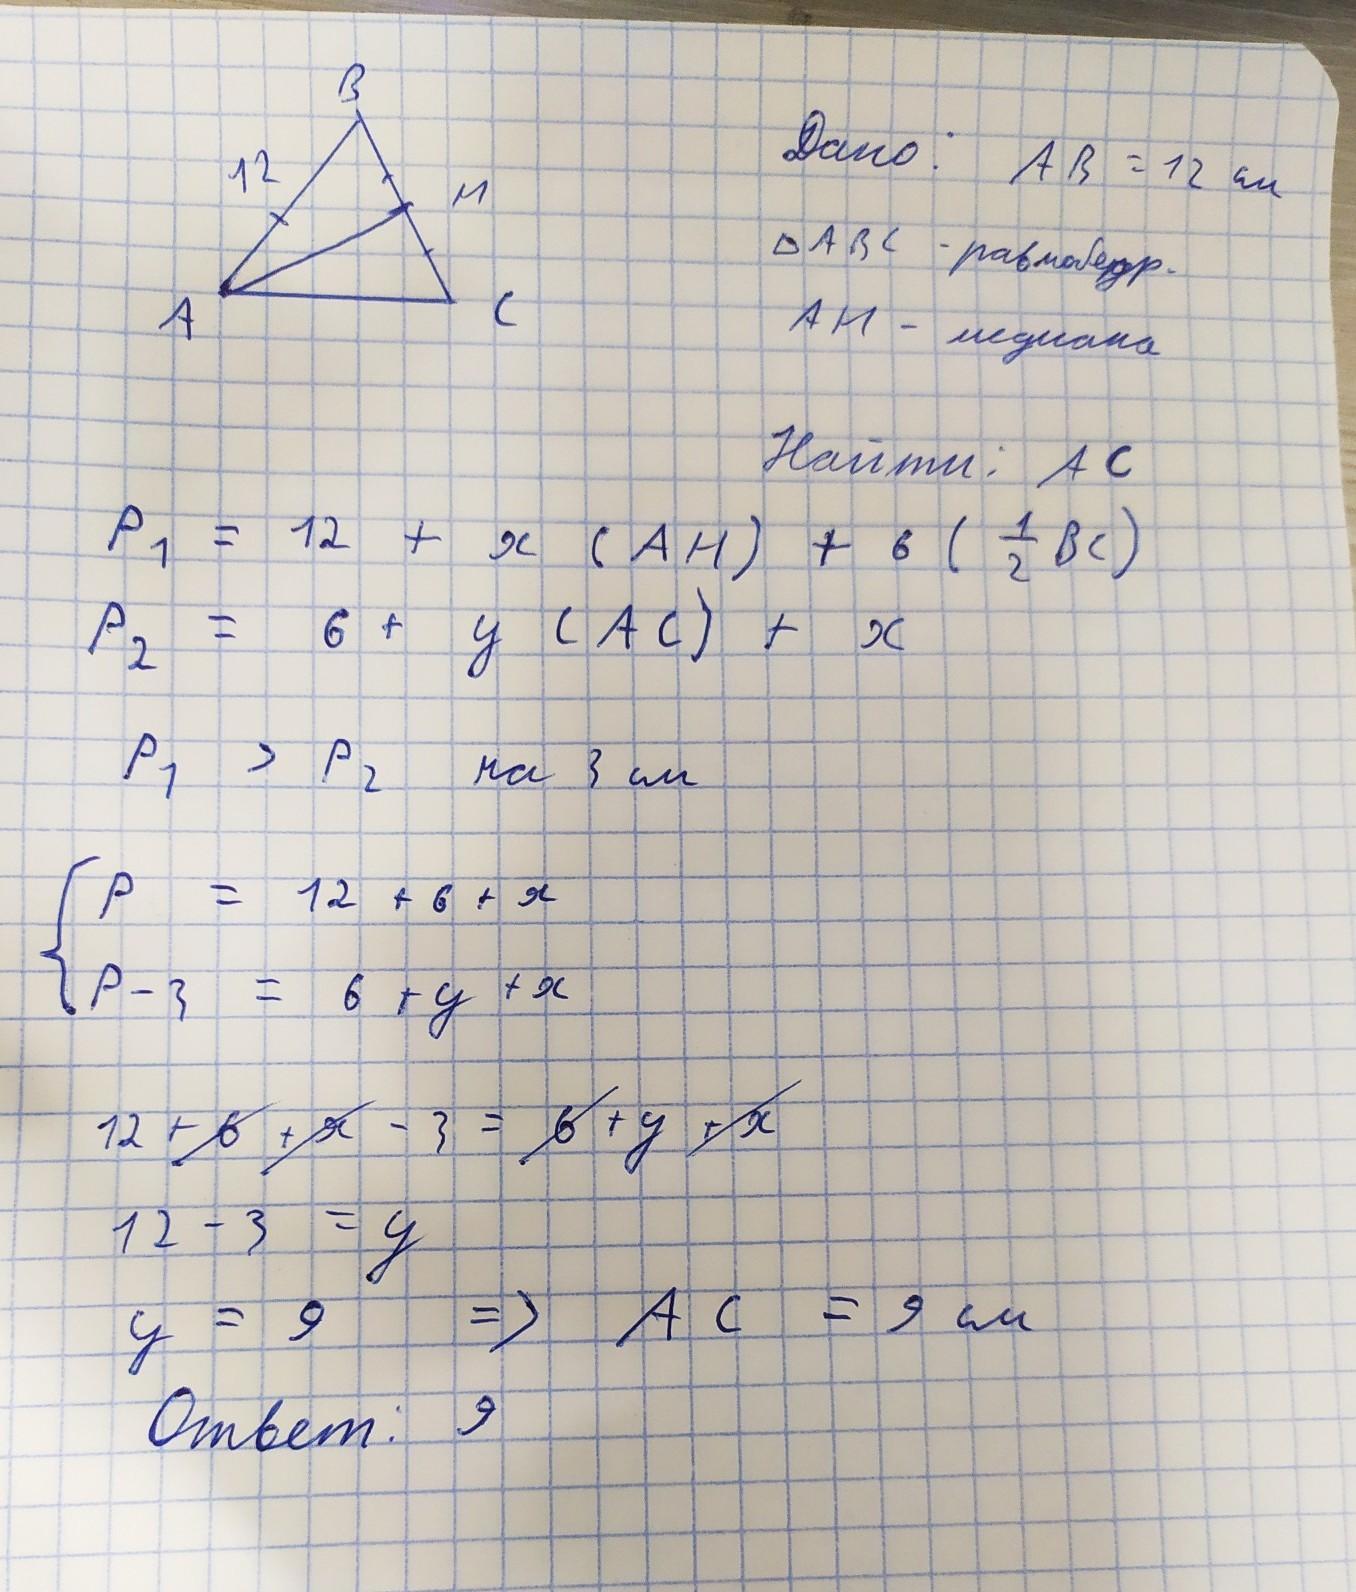 B
12
H
A
C
Дано: AB = 12 см
△ABC - равнобедр.
AH - медиана
Найти: AC
P₁ = 12 + x (AH) + 6 (½ BC)
P₂ = 6 + y (AC) + x
P₁ > P₂ на 3 см
{ P = 12 + 6 + x
P - 3 = 6 + y + x
12 + 6 + x - 3 = 6 + y + x
12 - 3 = y
y = 9 => AC = 9 см
Ответ: 9